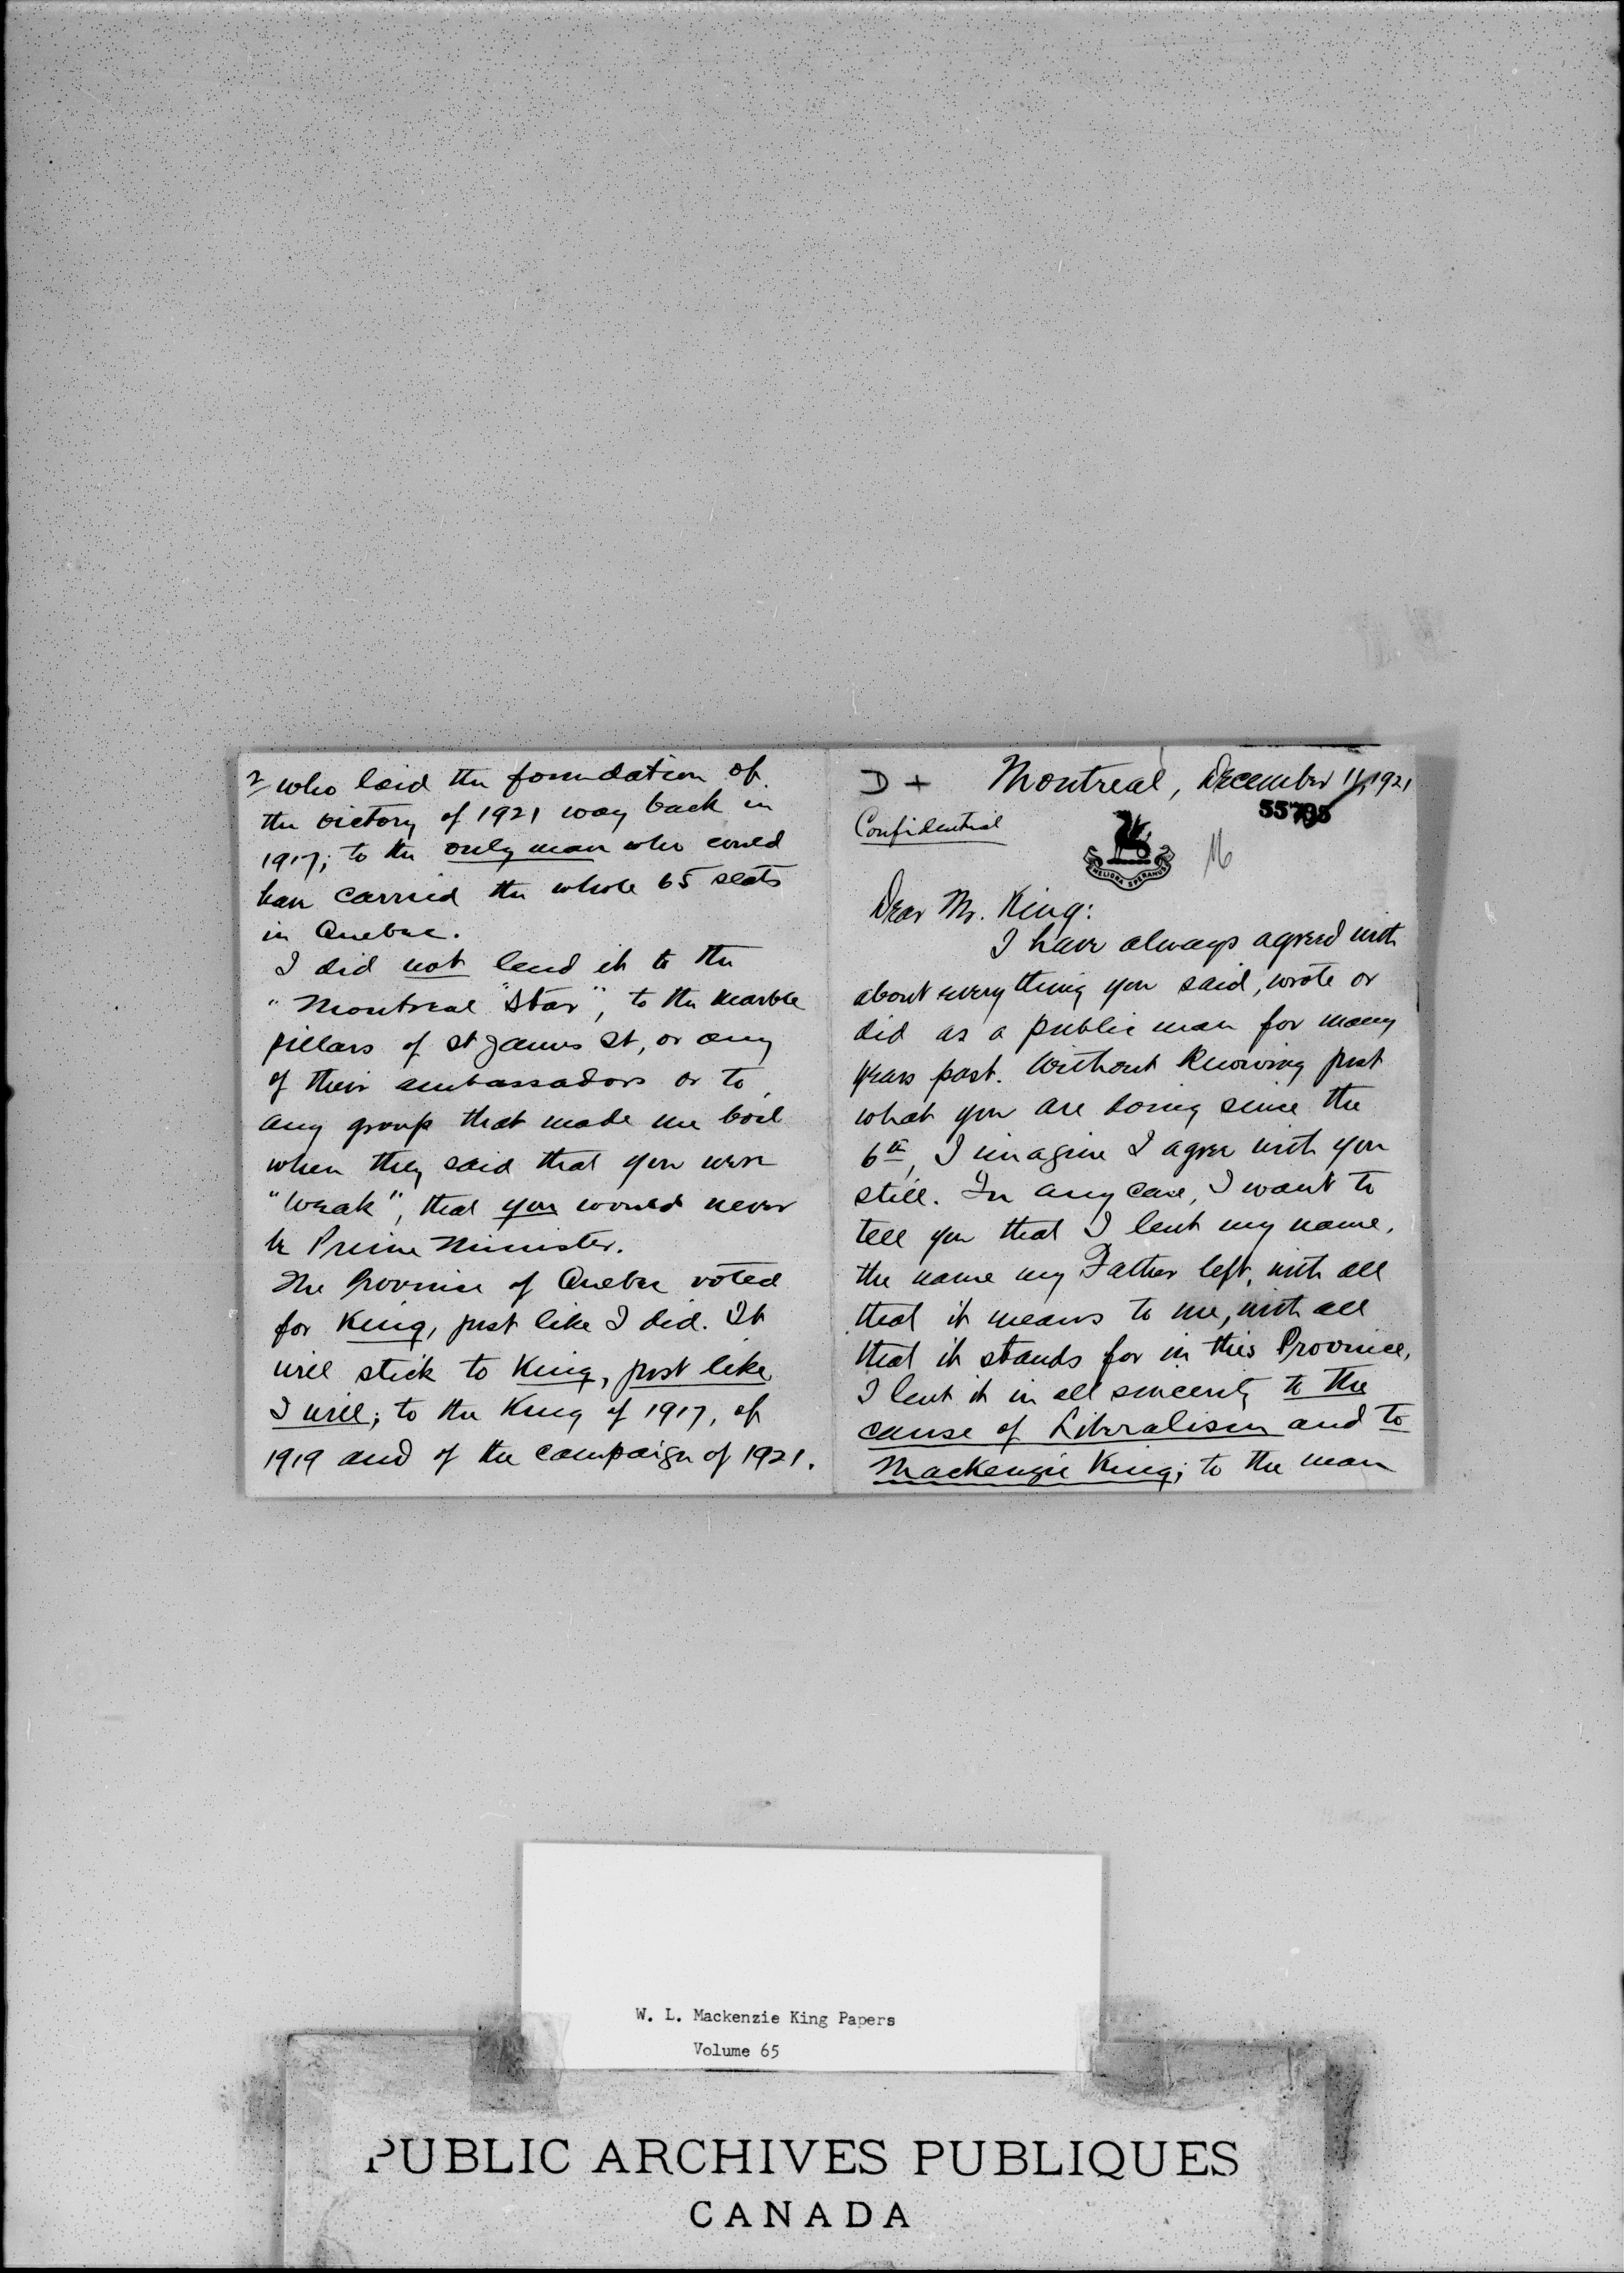 D + Montreal, December 11, 1921
55795
Confidential
MELIORA SPERAMUS
Dear Mr. King:
I have always agreed with
about every thing you said, wrote or
did as a public man for many
years past. Without knowing just
what you are doing since the
6th, I imagine I agree with you
still. In any case, I want to
tell you that I lent my name,
the name my Father left, with all
that it means to me, with all
that it stands for in this Province,
I lent it in all sincerity to the
cause of Liberalism and to
Mackenzie King; to the man
2 who laid the foundation of
the victory of 1921 way back in
1917; to the only man who could
have carried the whole 65 seats
in Quebec.
I did not lend it to the
"Montreal "Star", to the marble
pillars of St James St, or any
of their ambassadors or to
any group that made me boil
when they said that you were
"weak", that you would never
be Prime Minister.
The Province of Quebec voted
for King, just like I did. It
will stick to King, just like
I will; to the King of 1917, of
1919 and of the campaign of 1921.
W. L. Mackenzie King Papers
Volume 65
PUBLIC ARCHIVES PUBLIQUES
CANADA